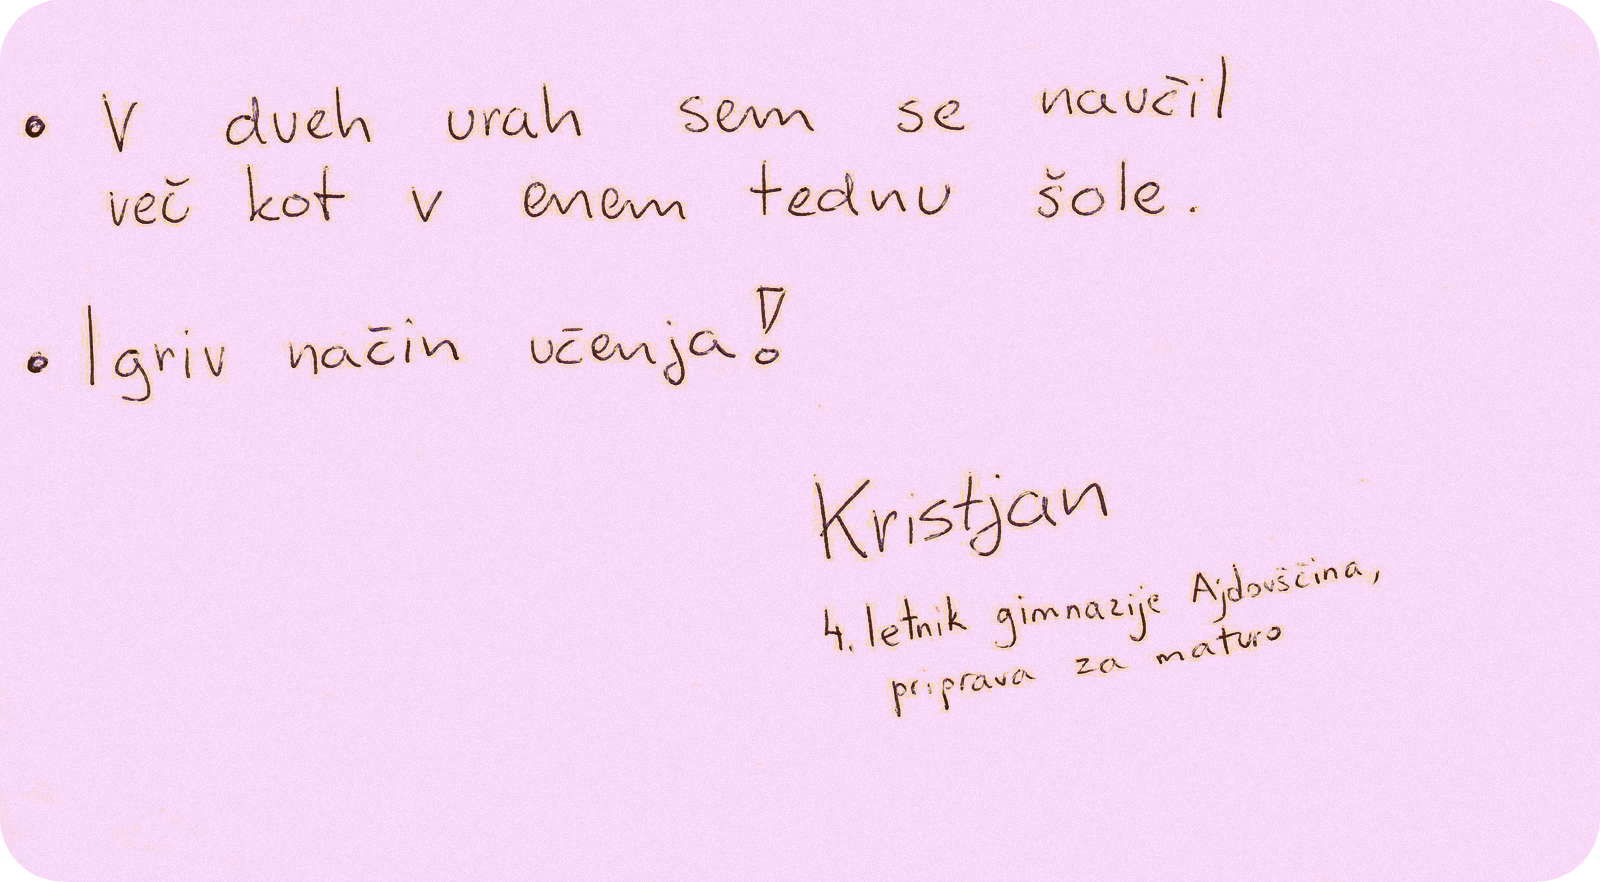 • V dveh urah sem se naučil
več kot v enem tednu šole.
• Igriv način učenja!
Kristjan
4. letnik gimnazije Ajdovščina,
priprava za maturo